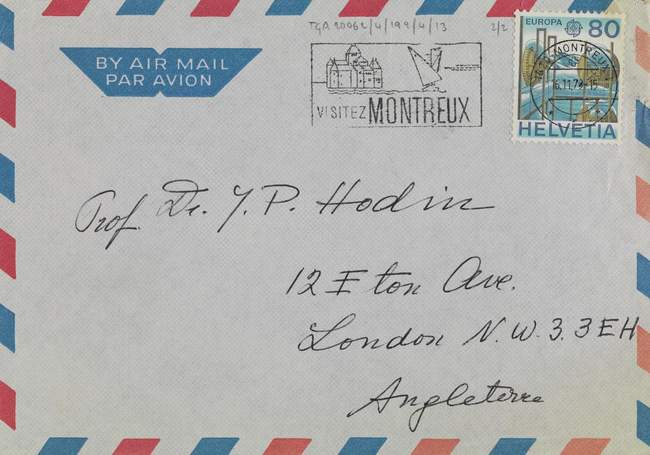 TGA 20062/4/199/4/13 2/2
EUROPA 80
BY AIR MAIL
PAR AVION
VISITEZ MONTREUX
MONTREUX
16.11.78-15
HELVETIA
Prof. Dr. J. P. Hodin
12 Eton Ave.
London N.W.3. 3EH
Angleterre